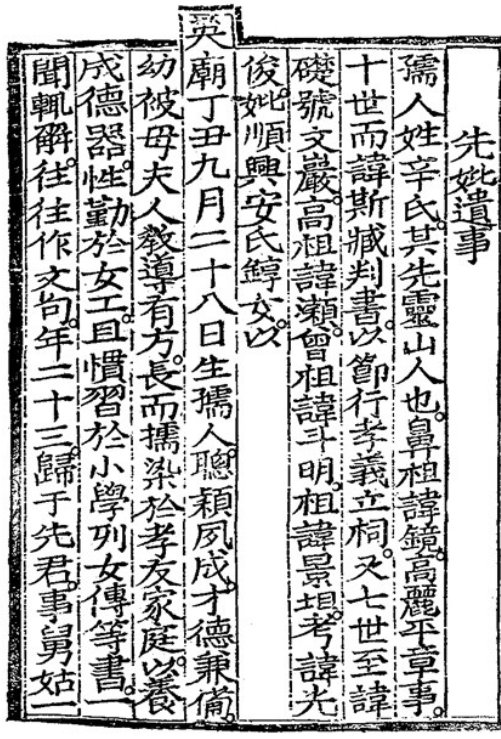 先妣遺事
孺人姓辛氏。其先靈山人也。鼻祖諱鏡。高麗平章事。
十世而諱斯蕆判書。以節行孝義立祠。又七世至諱
礎號文巖。高祖諱瀬。曾祖諱斗明。祖諱景坦。考諱光
俊。妣順興安氏錞女。以
英廟丁丑九月二十八日生孺人。聰穎夙成。才德兼備。
幼被母夫人敎導有方。長而擩染於孝友家庭。以養
成德器。性勤於女工。且慣習於小學列女傳等書。一
聞輒解。往往作文句。年二十三。歸于先君。事舅姑一